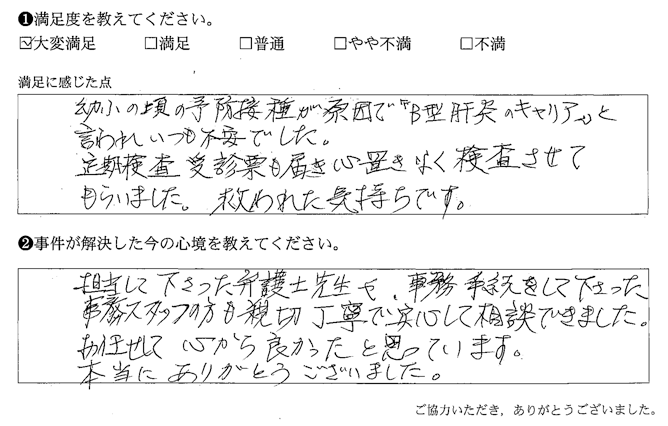 ❶満足度を教えてください。
☑大変満足 □満足 □普通 □やや不満 □不満
満足に感じた点
幼小の頃の予防接種が原因で『B型肝炎のキャリア』と
言われいつも不安でした。
定期検査受診票も届き心置きなく検査させて
もらいました。救われた気持ちです。
❷事件が解決した今の心境を教えてください。
担当して下さった弁護士先生や、事務手続をして下さった
事務スタッフの方も親切丁寧で安心して相談できました。
お任せして心から良かったと思っています。
本当にありがとうございました。
ご協力いただき，ありがとうございました。